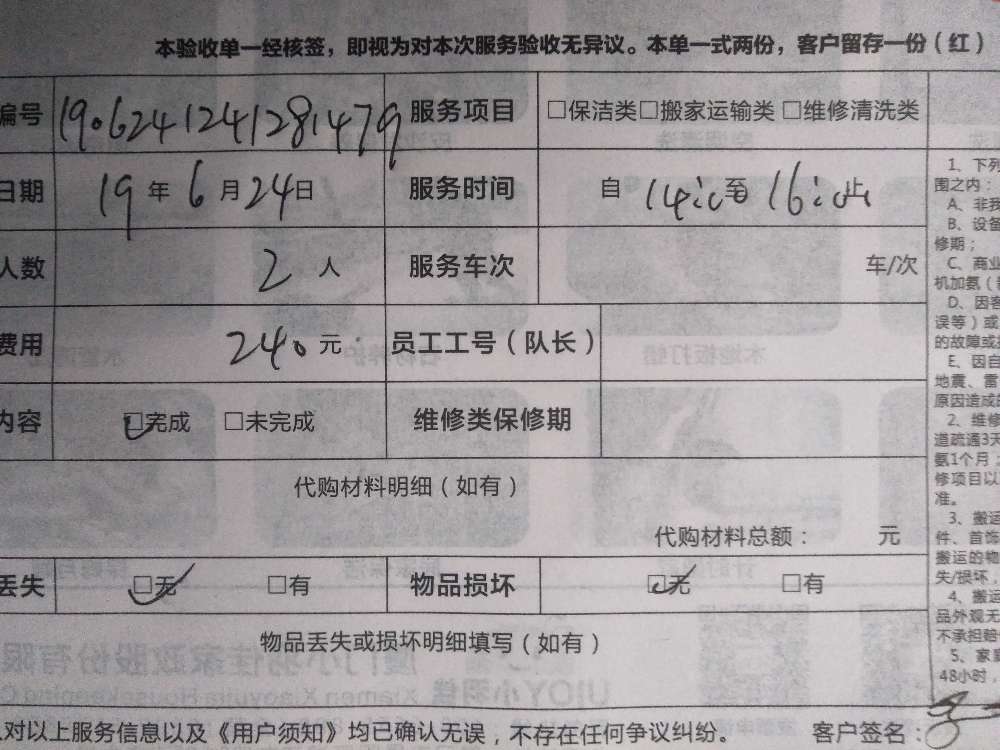 本验收单一经核签，即视为对本次服务验收无异议。本单一式两份，客户留存一份（红）
编号 1906241241281479 服务项目 □保洁类□搬家运输类 □维修清洗类
日期 19 年 6 月 24 日 服务时间 自 14:00 至 16:00 止
人数 2 人 服务车次 车/次
费用 240 元 员工工号（队长）
内容 □完成 □未完成 维修类保修期
代购材料明细（如有）
代购材料总额： 元
丢失 □无 □有 物品损坏 □无 □有
物品丢失或损坏明细填写（如有）
对以上服务信息以及《用户须知》均已确认无误，不存在任何争议纠纷。 客户签名：
1、下列
围之内：
A、非我
B、设备
修期；
C、商业
机加氨（
D、因客
误等）或
的故障或
E、因自
地震、雷
原因造成的
2、维修
道疏通3天
氨1个月；
修项目以
准。
3、搬运
件、首饰
搬运的物
失/损坏，
4、搬运
品外观无
不承担赔
5、家庭
48小时，